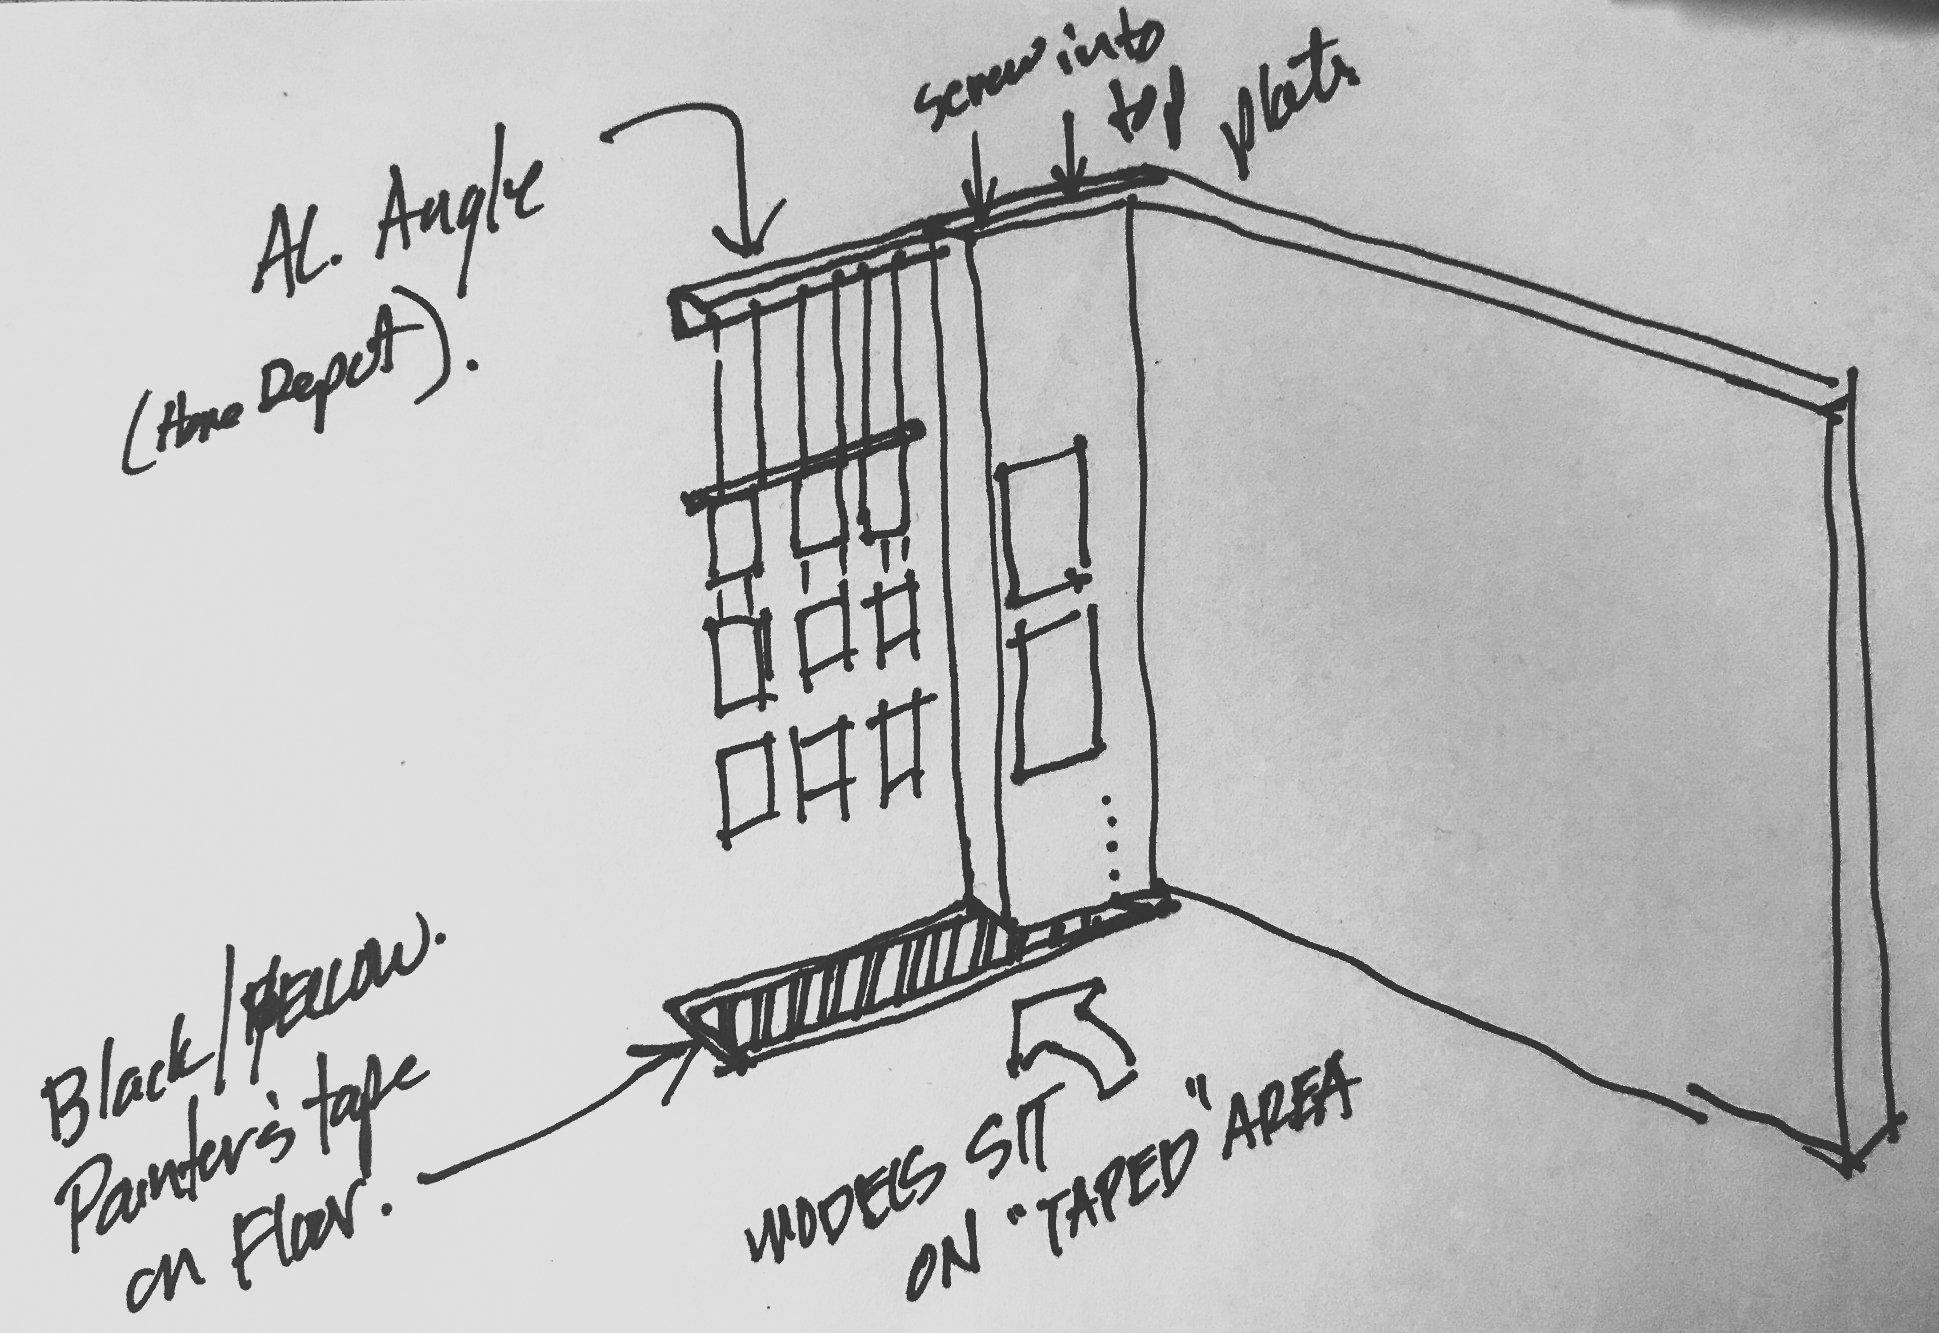 screw into
top plate
AL. Angle
(Home Depot).
Black/YELLOW.
Painter's tape
on Floor.
MODELS SIT
ON "TAPED" AREA